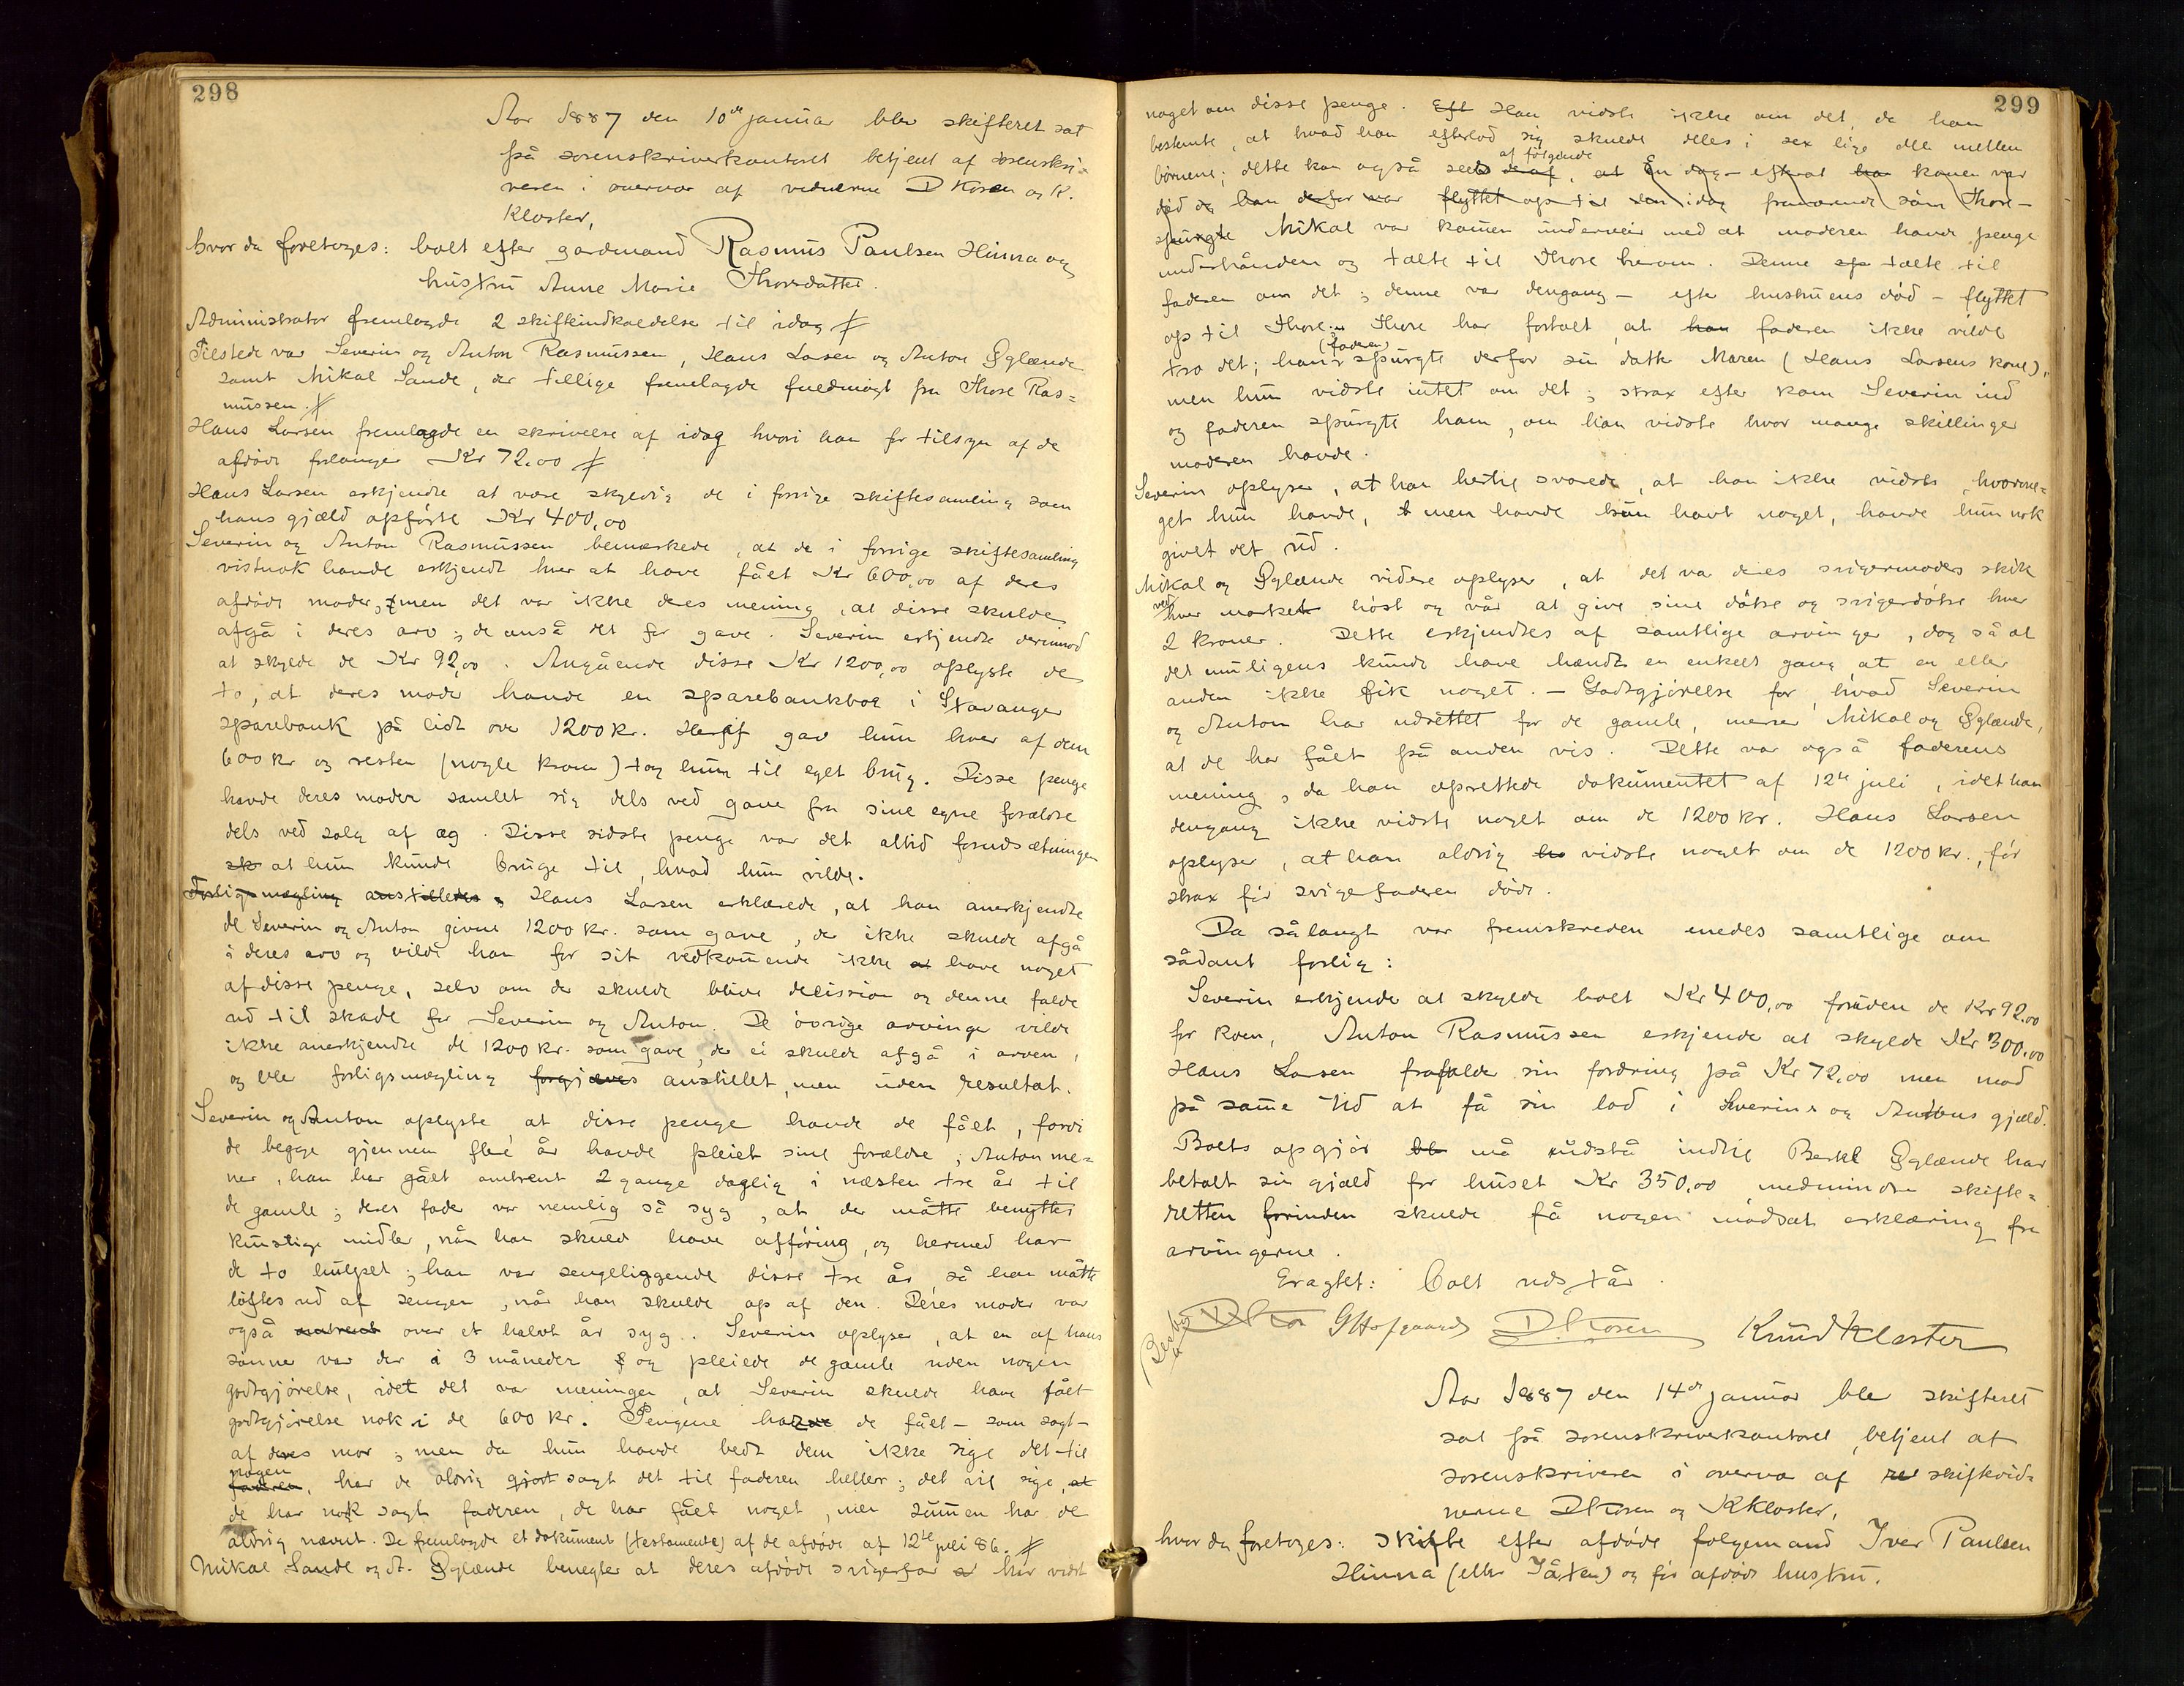 298
Aar 1887 den 10de januar blev skifteret sat
på sorenskriverkontoret betjent af sorenskri-
veren i overvær af vidnerne D Kosen og K.
Kloster,
hvor da foretoges: boet efter gardmand Rasmus Paulsen Hinna og
hustru Anne Marie Thorsdatter.
Administrator fremlagde 2 skifteindkaldelse til idag #
Tilstede var Severin og Anton Rasmussen, Hans Larsen og Anton Øglænde
samt Mikal Sande, der tillige fremlagde fuldmagt fra Thore Ras=
mussen. #
Hans Larsen fremlagde en skrivelse af idag hvori han for tilsyn af de
afdøde forlanger Kr 72.00 #
Hans Larsen erkjendte at være skyldig de i forrige skiftesamling som
hans gjæld opførte Kr 400,00
Severin og Anton Rasmussen bemærkede, at de i forrige skiftesamling
vistnok havde erkjendt hver at have fået Kr 600,00 af deres
afdøde moder, men det var ikke deres mening, at disse skulde
afgå i deres arv; de anså det for gave. Severin erkjendte derimod
at skylde de Kr 92,00. Angående disse Kr 1200,00 oplyste de
to, at deres moder havde en sparebankbog i Stavanger
sparebank på lidt over 1200 kr. Heraf gav hun hver af dem
600 kr og resten (nogle kroner) tog hun til eget brug. Disse penge
havde deres moder samlet sig dels ved gave fra sine egne forældre
dels ved salg af æg. Disse sidste penge var det altid forudsætningen
sk at hun kunde bruge til, hvad hun vilde.
Forligsmægling anstilledes; Hans Larsen erklærede, at han anerkjendte
de Severin og Anton givne 1200 kr. som gave, der ikke skulde afgå
i deres arv og vilde han for sit vedkommende ikke at have noget
af disse penge, selv om der skulde blive decission og denne falde
ud til skade for Severin og Anton. De øvrige arvinger vilde
ikke anerkjendte de 1200 kr. som gave, der ei skulde afgå i arven,
og blev forligsmægling forgjæves anstillet, men uden resultat.
Severin og Anton oplyste at disse penge havde de fået, fordi
de begge gjennem flere år havde pleiet sine forældre; Anton me=
ner, han har gået omtrent 2 gange daglig i næsten tre år til
de gamle; deres fader var nemlig så syg, at der måtte benyttes
kunstige midler, når han skulde have afføring, og hermed har
de to hulpet; han var sengeliggende disse tre år, så han måtte
løftes ud af sengen, når han skulde op af den. Deres moder var
også omtrent over et halvt år syg. Severin oplyser, at en af hans
sønner var der i 3 måneder og pleiede de gamle uden nogen
godtgjørelse, idet det var meningen, at Severin skulde have fået
godtgjørelse nok i de 600 kr. Pengene havde de fået – som sagt –
af deres mor; men da hun havde bedt dem ikke sige det til
nogen
faderen, har de aldrig gjort sagt det til faderen heller; det vil sige, at
de har nok sagt faderen, de har fået noget, men summen har de
aldrig nævnt. De fremlagde et dokument (testamente) af de afdøde af 12te juli 86. #
Mikal Sande og A. Øglænde benegter at deres afdøde svigerfar har vidst
299
noget om disse penge. Eft Han vidste ikke om det, da han
bestemte, at hvad han efterlod sig skulde deles i sex lige dele mellem
af følgende
børnene; dette kan også sees deraf, at Én dag – efterat ha konen var
død og han derfor var flyttet op til den idag fraværende søn Thore –
spurgte Mikal var kommen underveir med at moderen havde penge
underhånden og talte til Thore herom. Denne sp talte til
faderen om det; denne var dengang – efter hustruens død – flyttet
op til Thore. Thore har fortalt, at han faderen ikke vilde
(faderen)
tro det; han spurgte derfor sin datter Maren (Hans Larsens kone),
men hun vidste intet om det; strax efter kom Severin ind
og faderen spurgte ham, om han vidste hvor mange skillinger
moderen havde.
Severin oplyser, at han hertil svarede, at han ikke vidste, hvorme=
get hun havde, men havde hun havt noget, havde hun nok
givet det ud.
Mikal og Øglænde videre oplyser, at det var deres svigermoders skik
ved
hver marked høst og vår at give sine døtre og svigerdøtre hver
2 kroner. Dette erkjendtes af samtlige arvinger, dog så at
det muligens kunde have hændt en enkelt gang, at en eller
anden ikke fik noget. – Godtgjørelse for, hvad Severin
og Anton har udrettet for de gamle, mener Mikal og Øglænde,
at de har fået på anden vis. Dette var også faderens
mening, da han oprettede dokumentet af 12te juli, idet han
dengang ikke vidste noget om de 1200 kr. Hans Larsen
oplyser, at han aldrig ha vidste noget om de 1200 kr., før
strax før svigerfaderen døde.
Da sålangt var fremskreden enedes samtlige om
sådant forlig:
Severin erkjender at skylde boet Kr 400,00 foruden de Kr 92.00
for koen, Anton Rasmussen erkjender at skylde Kr 300.00
Hans Larsen frafalder sin fordring på Kr 72.00 men mod
på samme tid at få sin lod i Severins og Antons gjæld.
Boets opgjør må udstå indtil Bertel Øglænde har
betalt sin gjæld for huset Kr 350.00, medmindre skifte=
retten forinden skulde få nogen modsat erklæring fra
arvingerne.
Eragtet: Boet udstår.
GHofgaard D. Kosen Knud Kloster
Aar 1887 den 14de januar blev skifteret
sat på sorenskriverkontoret, betjent af
sorenskriveren i overvær af skiftevid=
nerne D Kosen og K Kloster,
hvor da foretoges: Skifte efter afdøde følgemand Iver Paulsen
Hinna (eller Jåtten) og før afdøde hustru.